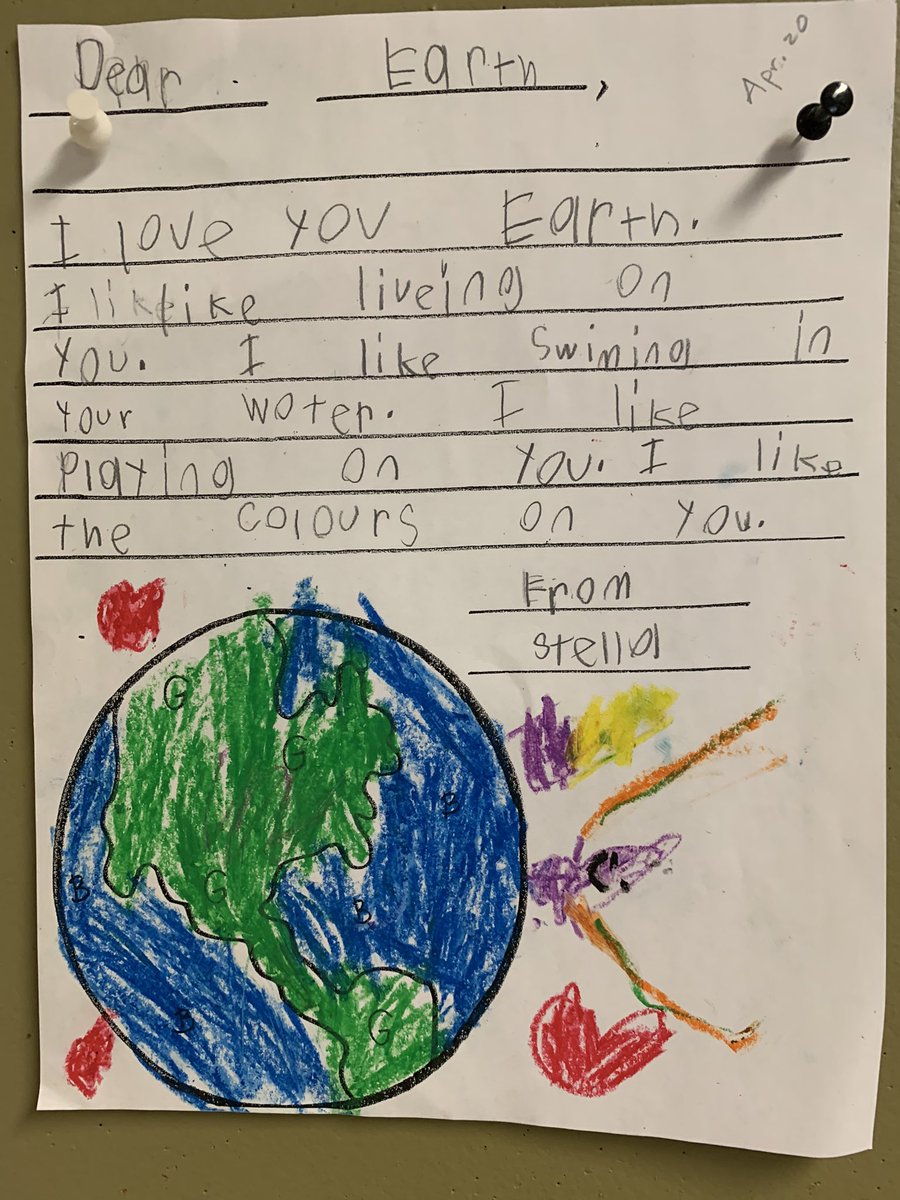 Dear Earth,
Apr. 20
I love you Earth.
I lik like liveing on
you. I like Swiming in
your woter. I like
Playing on you. I like
the colours on you.
From
Stella
G
G
B
B
G
B
B
G